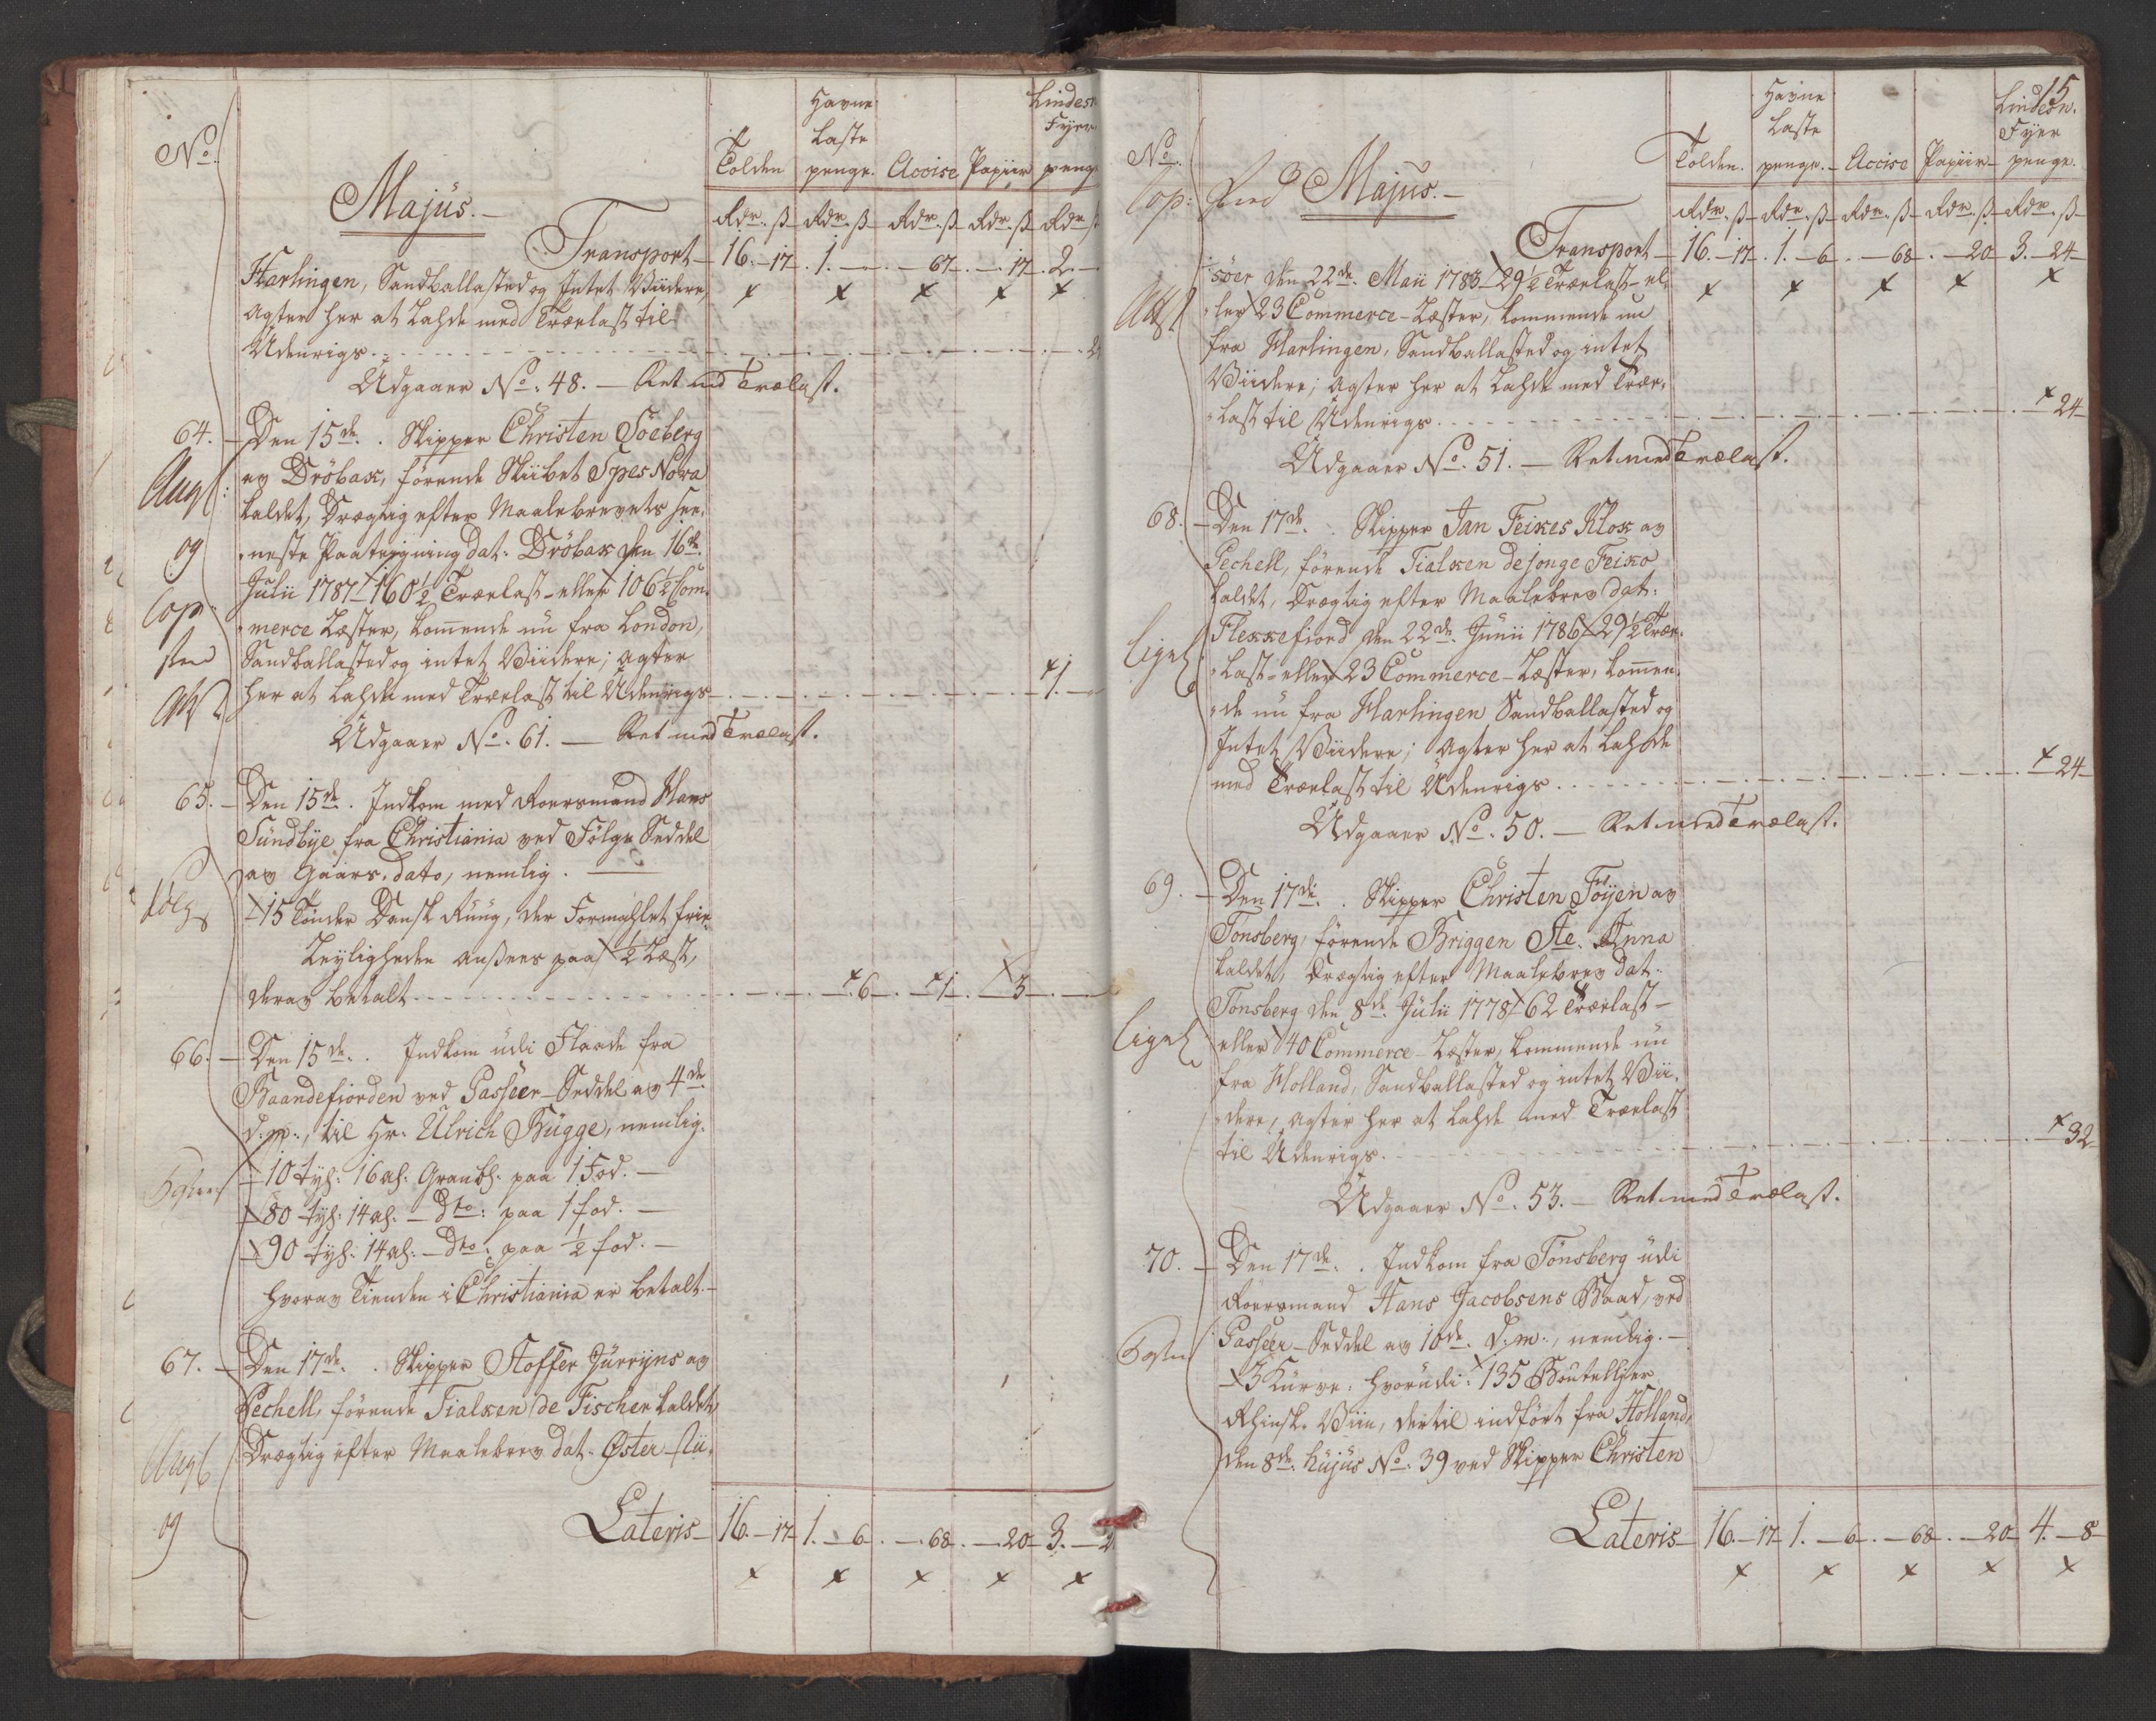 No.
Majus.
Havne
Laste
Lindesn
Fyer
Tolden penge. Accise Papiir peng
Rdr. ß Rdr. ß Rdr. ß Rdr. ß Rdr
Transport 16.-17. 1.- - 67. - 17. 2.-
Harlingen, Sandballasted og Intet Viidere,
Agter her at Lahde med Trælast til
Udenrigs
Udgaaer No. 48. - Ret med Trælast.
64. Den 15de. Skipper Christen Söeberg
av Dröbak, förende Skibet Spes Nova
kaldet, Drægtig efter Maalebrevets See-
neste Paategning dat: Dröbak den 16de
Julii 1787 160½ Trælast- eller 106½ Com-
merce Læster, kommende nu fra London,
Sandballasted og intet Viidere; agter
her at Lahde med Trælast til Udenrigs 1.-
Udgaaer No. 61. - Ret med Trælast.
65. Den 15de. Indkom med Roersmand Hans
Sundbye fra Christiania ved Fölge Seddel
av Gaars. dato, nemlig.
15 Tönder Dansk Ruug, der Formahlet frie
Leyligheden ansees paa ½ Læst,
derav betalt 6. 1. 3.
66. Den 15de. Indkom udi Flaade fra
Baandefiorden ved Passeer-Seddel av 4de
d.m., til Hr. Ulrich Bügge, nemlig.
10 tyl: 16 al: Granbl. paa 1. Fod.
80 tyl: 14 al: Dto: paa 1 fod.
90 tyl: 14 al: Dto: paa ½ fod.
Hvorav Tienden i Christiania er betalt.
67. Den 17de. Skipper Stoffer Jürryns av
Pechell, förende Tialken de Fischer kaldet,
Drægtig efter Maalebrev dat. Öster-
og
Lateris 16.-17 1.-6. - 68. - 20 3.-2
15
No.
Majus.
Havne
Laste
Lindesn.
Fyer
Tolden. penge. Accise Papiir penge.
Rdr. ß Rdr. ß Rdr. ß Rdr. ß Rdr. ß
Transport 16.-17. 1.-6. - 68. - 20 3.-24
söer den 22de Maii 1783 29½ Trælast- el-
ler 23 Commerce-Læster, kommende nu
fra Harlingen, Sandballasted og intet
Viidere; agter her at Lahde med Træ-
last til Udenrigs 24
Udgaaer No. 51. - Ret med Trælast.
68. Den 17de. Skipper Jan Feikes Klok av
Pechell, förende Tialken de Jonge Feiko
kaldet, Drægtig efter Maalebrev dat:
Flekkefiord den 22de Junii 1786 29½ Træ-
last- eller 23 Commerce-Læster, kommen-
de nu fra Harlingen Sandballasted og
Intet Viidere; Agter her at Lahde
med Trælast til Udenrigs 24
Udgaaer No. 50. - Ret med Trælast.
69. Den 17de. Skipper Christen Föyen av
Tonsberg, förende Briggen Ste. Anna
kaldet, Drægtig efter Maalebrev dat.
Tonsberg den 8de Julii 1778 62 Trælast-
eller 40 Commerce-Læster, kommende nu
fra Holland, Sandballasted og intet Vii-
dere, agter her at Lahde med Trælast
til Udenrigs. 32
Udgaaer No. 53. - Ret med Trælast.
70. Den 17de. Indkom fra Tönsberg udi
Roersmand Hans Jacobsens Baad, ved
Passeer-Seddel av 10de d.m., nemlig.
3 Kurve: hvorudi: 135 Bouteiller
Rhinsk. Viin, dertil indfört fra Holland,
den 8de hujus No. 39 ved Skipper Christen
Lateris 16.-17 1.-6. - 68. - 20 4.-8